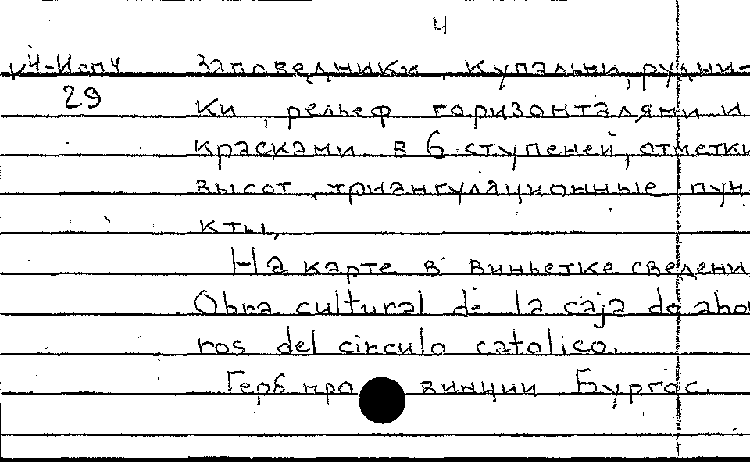 4
К4-Исп4 Заповедники, купальни, рудни-
29 ки, рельеф горизонталями и
красками в 6 ступеней, отметки
высот, триангуляционные пун-
кты,
На карте в виньетке сведени
Obra cultural de la caja de aho
ros del circulo catolico.
Герб провинции Бургос.